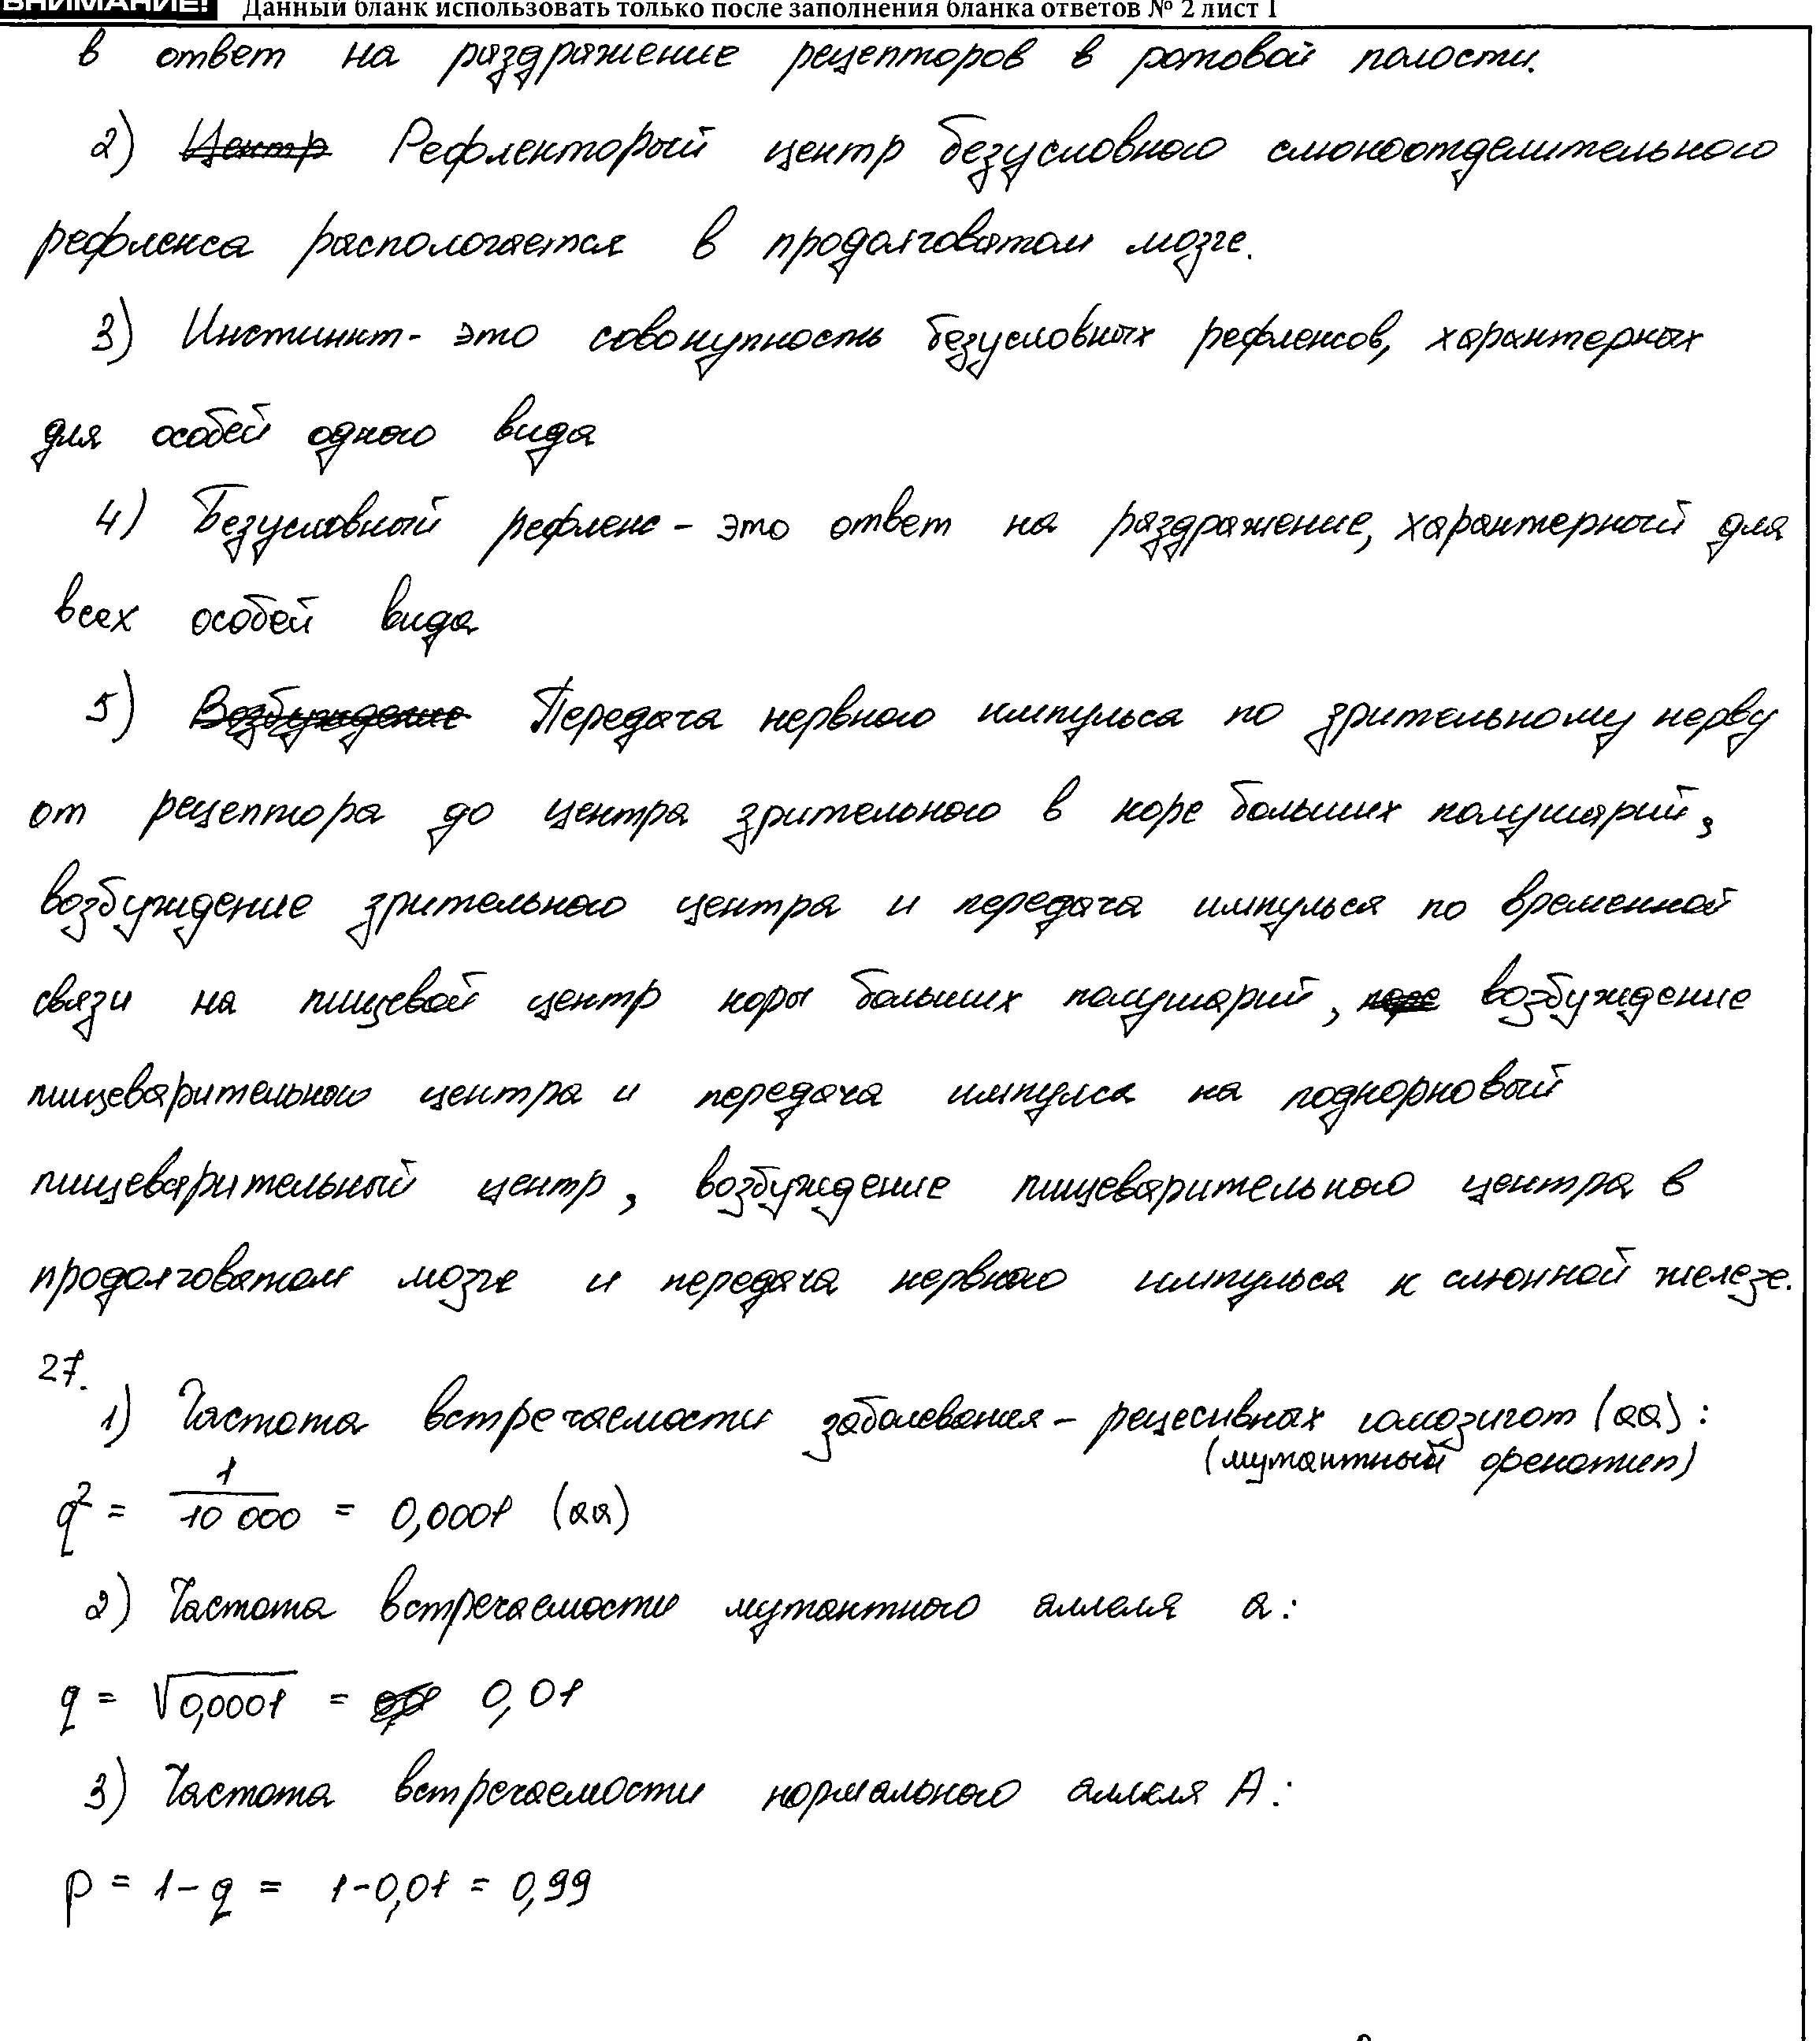 ВНИМАНИЕ! Данный бланк использовать только после заполнения бланка ответов № 2 лист 1
в ответ на раздражение рецепторов в ротовой полости.
2) Центр Рефлекторый центр безусловного слюноотделительного
рефлекса распологается в продолговатом мозге.
3) Инстинкт - это совокупность безусловных рефлексов, характерных
для особей одного вида
4) Безусловный рефлекс - это ответ на раздражение, характерный для
всех особей вида
5) Возбуждение Передача нервного импульса по зрительному нерву
от рецептора до центра зрительного в коре больших полушарий,
возбуждение зрительного центра и передача импульса по временной
связи на пищевой центр коры больших полушарий, возбуждение
пищеварительного центра и передача импулса на подкорковый
пищеварительный центр, возбуждение пищеварительного центра в
продолговатом мозге и передача нервного импульса к слюнной железе.
27.
1) Частота встречаемости заболевания - рецесивных гомозигот (аа):
(мутантный фенотип)
q² = 1/10 000 = 0,0001 (аа)
2) Частота встречаемости мутантного аллеля а:
q = √0,0001 = 0,01
3) Частота встречаемости нормального аллеля А:
p = 1 - q = 1 - 0,01 = 0,99